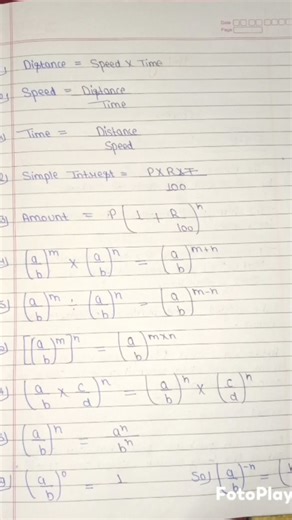 Date
Page
Distance = Speed x Time
Speed = Distance / Time
Time = Distance / Speed
Simple Interest = P X R X T / 100
Amount = P (1 + R/100)^n
(a/b)^m x (a/b)^n = (a/b)^m+n
5) (a/b)^m ÷ (a/b)^n = (a/b)^m-n
[(a/b)^m]^n = (a/b)^mxn
(a/b x c/d)^n = (a/b)^n x (c/d)^n
(a/b)^n = a^n / b^n
(a/b)^0 = 1 So) (a/b)^-n = (
FotoPlay